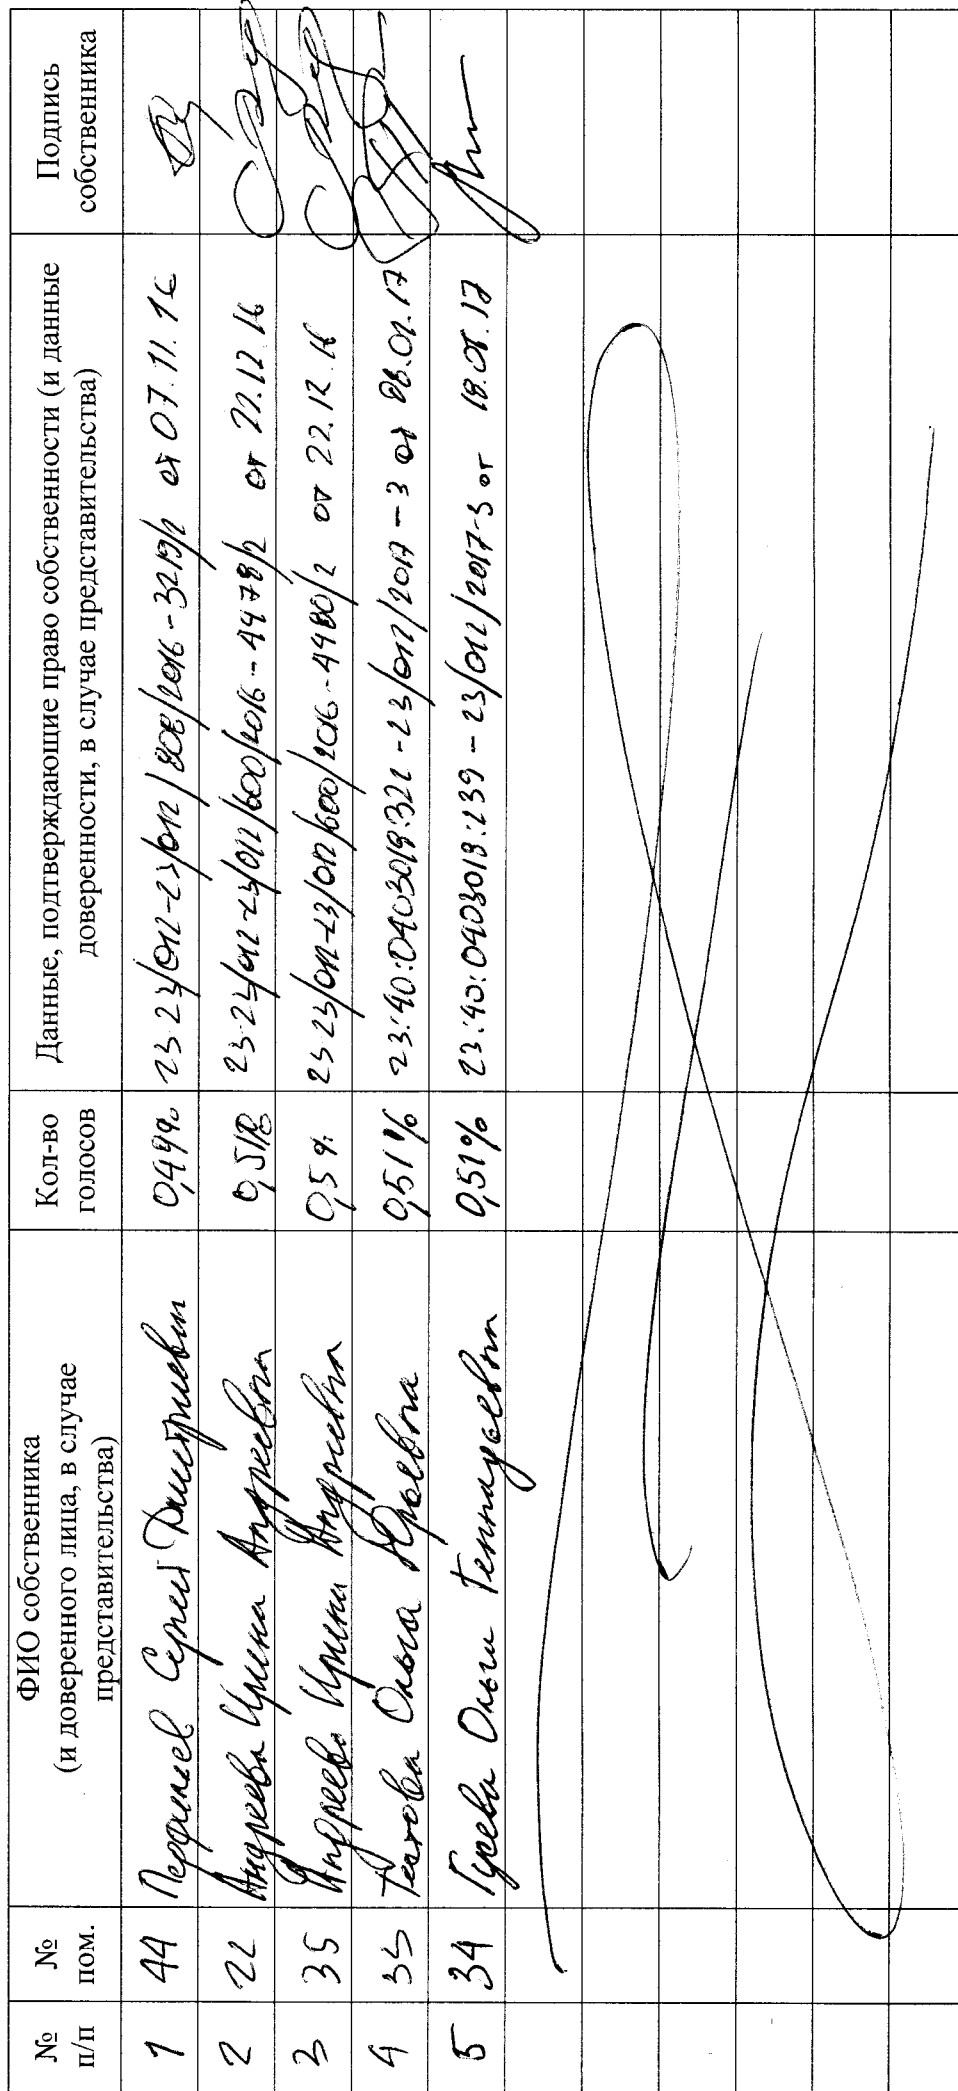 № п/п
№ пом.
ФИО собственника
(и доверенного лица, в случае
представительства)
Кол-во
голосов
Данные, подтверждающие право собственности (и данные
доверенности, в случае представительства)
Подпись
собственника
1 44 Сергей Дмитриевич 0,49% 23-23/012-23/012/808/2016-3219/2 от 07.11.16
2 22 Андреева Ирина Андреевна 0,51% 23-23/012-23/012/600/2016-4478/2 от 22.12.16
3 35 Андреева Ирина Андреевна 0,5% 23-23/012-23/012/600/2016-4480/2 от 22.12.16
4 33 Ольга Юрьевна 0,51% 23:40:0403019:322-23/012/2017-3 от
5 34 Гусева Ольга Геннадьевна 0,51% 23:40:0403019:239-23/012/2017-3 от